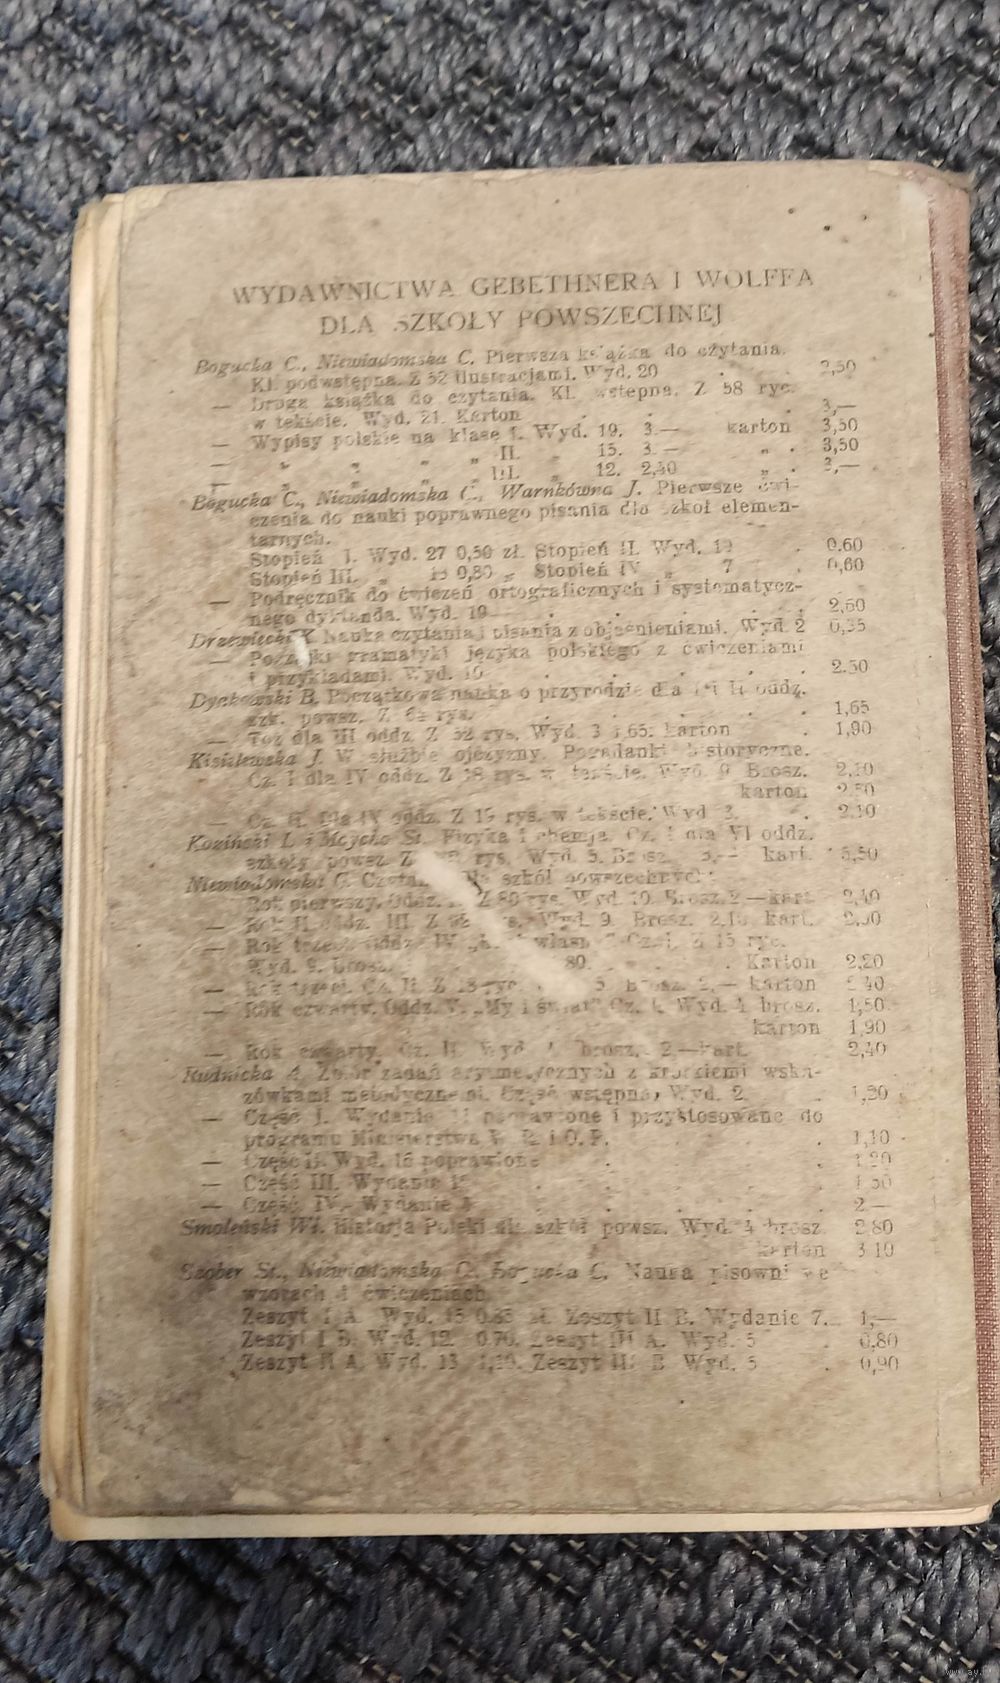 WYDAWNICTWA GEBETHNERA I WOLFFA
DLA SZKOŁY POWSZECHNEJ
Bogucka C., Niewiadomska C. Pierwsza książka do czytania.
Kl. podwstępna. Z 52 ilustracjami. Wyd. 20 . . 2,50
— Druga książka do czytania. Kl. wstępna. Z 58 ryc.
w tekście. Wyd. 21. Karton . . . 3,—
— Wypisy polskie na klasę I. Wyd. 19. 3.— karton 3,50
— „ „ „ „ II. „ 15. 3.— „ . 3,50
— „ „ „ „ III. „ 12. 2,40 „ . 3,—
Bogucka C., Niewiadomska C., Warnkówna J. Pierwsze ćwi-
czenia do nauki poprawnego pisania dla szkół elemen-
tarnych.
Stopień I. Wyd. 27 0,50 zł. Stopień II. Wyd. . 0.60
Stopień III. „ 0,80 „ Stopień IV „ 7 . 0,60
— Podręcznik do ćwiczeń ortograficznych i systematycz-
nego dyktanda. Wyd. 19 . . . . 2,60
Drzewiecki K. Nauka czytania i pisania z objaśnieniami. Wyd. 2 0,35
— Początki gramatyki języka polskiego z ćwiczeniami
i przykładami. Wyd. . . . . 2.50
Dyakowski B. Początkowa nauka o przyrodzie dla I i II oddz.
szk. powsz. Z rys. . . . . 1,65
— Toż dla III oddz. Z 52 rys. Wyd. 3 1,65. karton . 1,90
Kisielewska J. W służbie ojczyzny. Pogadanki historyczne.
Cz. I dla IV oddz. Z 18 rys. w tekście. Wyd. 9. Brosz. 2,10
karton 2.50
— Cz. II. Dla IV oddz. Z rys. w tekście. Wyd. 3. . 2.10
Koziński L. i Mcycho St. Fizyka i chemja. Cz. I dla VI oddz.
szkoły powsz. Z rys. Wyd. 5. Brosz. kart.
Niewiadomska C. szkół powszechnych:
Rok pierwszy. Oddz. Z 80 ryc. Wyd. 10. Brosz. 2.—kart. 2,40
— Rok II. oddz. III. Z Wyd. 9. Brosz. 2.10. kart.
— Rok trzeci. oddz. IV. Cz. I. Z 15 ryc.
Wyd. 9. brosz. 80. . Karton 2,20
— Rok trzeci. Cz. II. Z ryc. Brosz. 2,— karton 2 40
— Rok czwarty. Oddz. V. „My i świat" Cz. I. Wyd. 4 brosz. 1,50
karton 1,90
— Rok czwarty. Cz. II. Wyd. brosz. 2,—kart. 2,40
Rudnicka A. Zbiór zadań arytmetycznych z krótkiemi wska-
zówkami metodycznemi. Część wstępna, Wyd. 2. .
— Część I. Wydanie poprawione i przystosowane do
programu Ministerstwa W. R. i O. P. . . 1,10
— Część II. Wyd. 16 poprawione . .
— Część III. Wydanie . . . 1 50
— Część IV. Wydanie . . . 2 —
Smoleński Wł. Historja Polski dla szkół powsz. Wyd. 4 brosz. 2,80
karton 3 10
Szober St., Niewiadomska C., Bogucka C. Nauka pisowni we
wzorach i ćwiczeniach.
Zeszyt I A. Wyd. 15 0.85 zł. Zeszyt II B. Wydanie 7. . 1,—
Zeszyt I B. Wyd. 12. 0.70. Zeszyt III A. Wyd. 5 0,80
Zeszyt II A. Wyd. 13 Zeszyt III B Wyd. 5 . 0,90
www.ay.